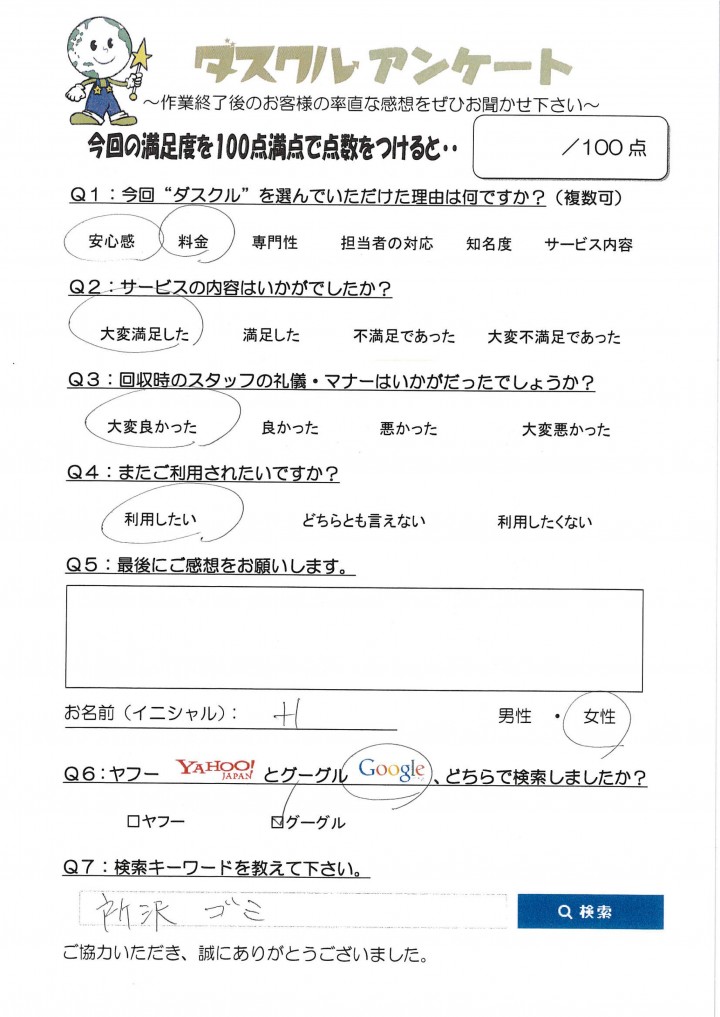 ダスクル アンケート
～作業終了後のお客様の率直な感想をぜひお聞かせ下さい～
今回の満足度を100点満点で点数をつけると・・ ／100 点
Q1：今回“ダスクル”を選んでいただけた理由は何ですか？（複数可）
安心感 料金 専門性 担当者の対応 知名度 サービス内容
Q2：サービスの内容はいかがでしたか？
大変満足した 満足した 不満足であった 大変不満足であった
Q3：回収時のスタッフの礼儀・マナーはいかがだったでしょうか？
大変良かった 良かった 悪かった 大変悪かった
Q4：またご利用されたいですか？
利用したい どちらとも言えない 利用したくない
Q5：最後にご感想をお願いします。
お名前（イニシャル）： H 男性 ・ 女性
Q6：ヤフー YAHOO! JAPAN とグーグル Google 、どちらで検索しましたか？
□ヤフー ☑グーグル
Q7：検索キーワードを教えて下さい。
所沢 ゴミ 検索
ご協力いただき、誠にありがとうございました。